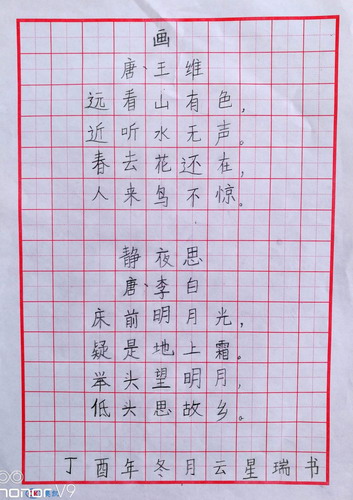 画
唐、王维
远看山有色，
近听水无声。
春去花还在，
人来鸟不惊。
静夜思
唐、李白
床前明月光，
疑是地上霜。
举头望明月，
低头思故乡。
丁酉年冬月云星瑞书
honor V9